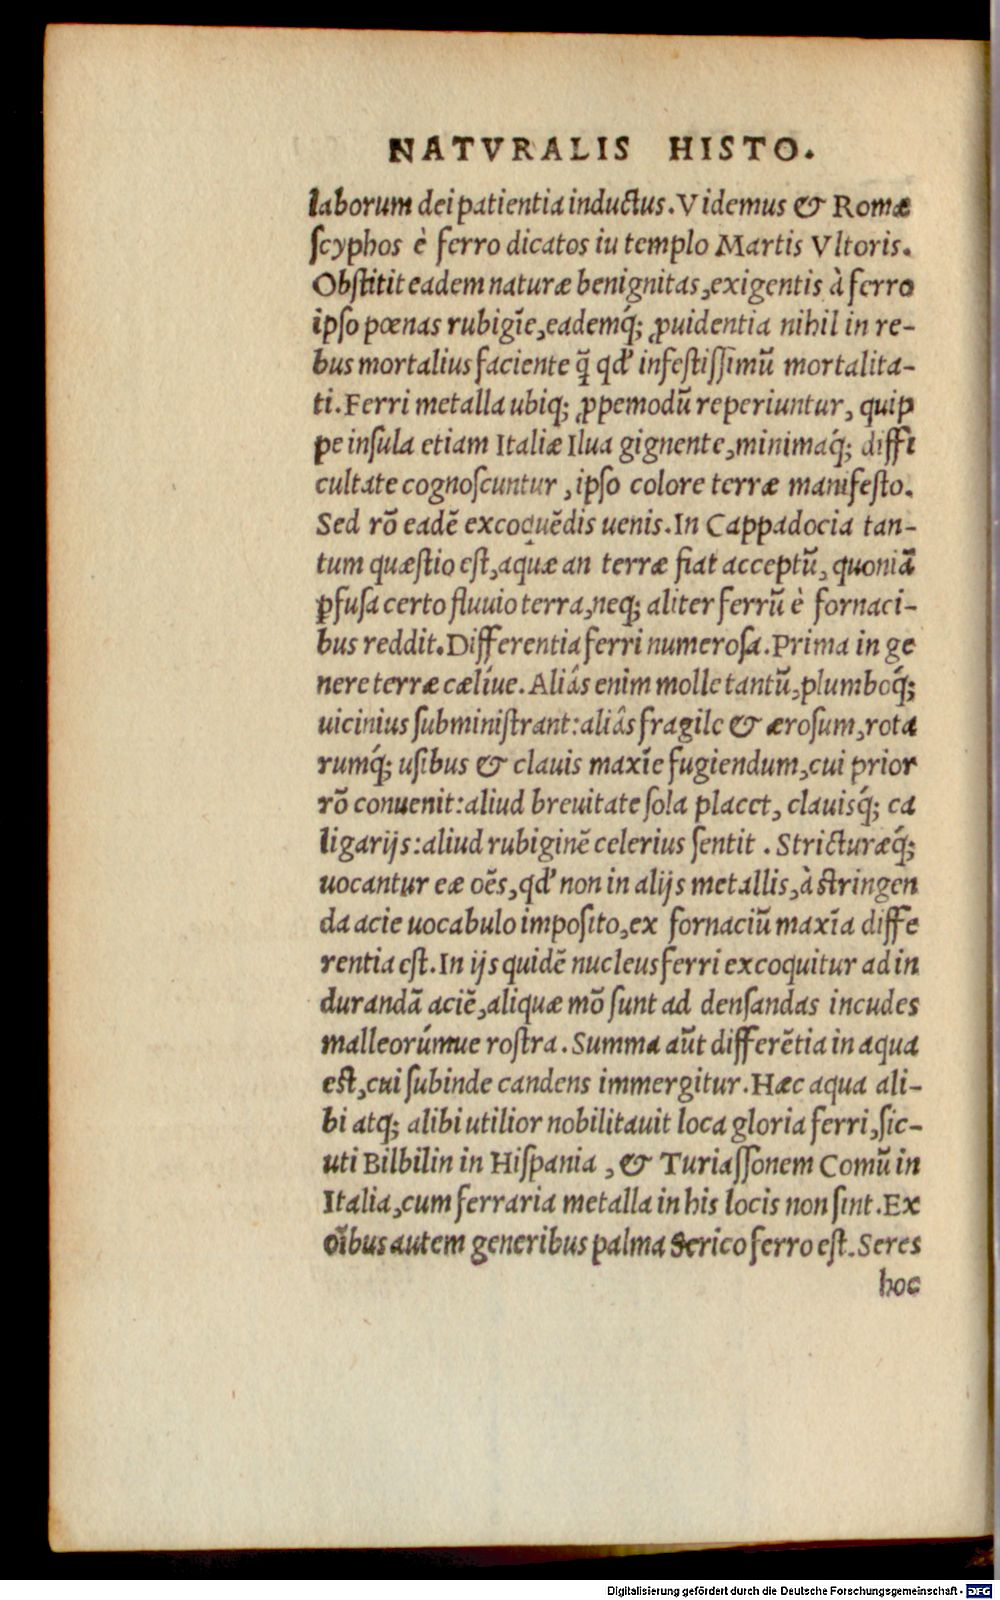 NATVRALIS HISTO.
laborum dei patientia inductus. Videmus & Romæ
scyphos è ferro dicatos iu templo Martis Vltoris.
Obstitit eadem naturæ benignitas, exigentis à ferro
ipso pœnas rubigīe, eademq́; ꝓuidentia nihil in re-
bus mortalius faciente q̄̃ qđ infestissimū mortalita-
ti. Ferri metalla ubiq; ꝓpemodū reperiuntur, quip
pe insula etiam Italiæ Ilua gignente, minimaq́; diffi
cultate cognoscuntur, ipso colore terræ manifesto.
Sed rō eadē excoquēdis uenis. In Cappadocia tan-
tum quæstio est, aquæ an terræ fiat acceptū, quoniā
ꝑfusa certo fluuio terra, neq; aliter ferrū è fornaci-
bus reddit. Differentia ferri numerosa. Prima in ge
nere terræ cælíue. Aliâs enim molle tantū, plumboq́;
uicinius subministrant: aliâs fragile & ærosum, rota
rumq́; usibus & clauis maxīe fugiendum, cui prior
rō conuenit: aliud breuitate sola placet, clauisq́; ca
ligarijs: aliud rubiginē celerius sentit. Stricturæq́;
uocantur eæ oēs, qđ non in alijs metallis, à stringen
da acie uocabulo imposito, ex fornaciū maxīa diffe
rentia est. In ijs quidē nucleus ferri excoquitur ad in
durandā aciē, aliquæ mō sunt ad densandas incudes
malleorúmue rostra. Summa aūt differētia in aqua
est, cui subinde candens immergitur. Hæc aqua ali-
bi atq; alibi utilior nobilitauit loca gloria ferri, sic-
uti Bilbilin in Hispania, & Turiassonem Comū in
Italia, cum ferraria metalla in his locis non sint. Ex
oībus autem generibus palma Serico ferro est. Seres
hoc
Digitalisierung gefördert durch die Deutsche Forschungsgemeinschaft - DFG